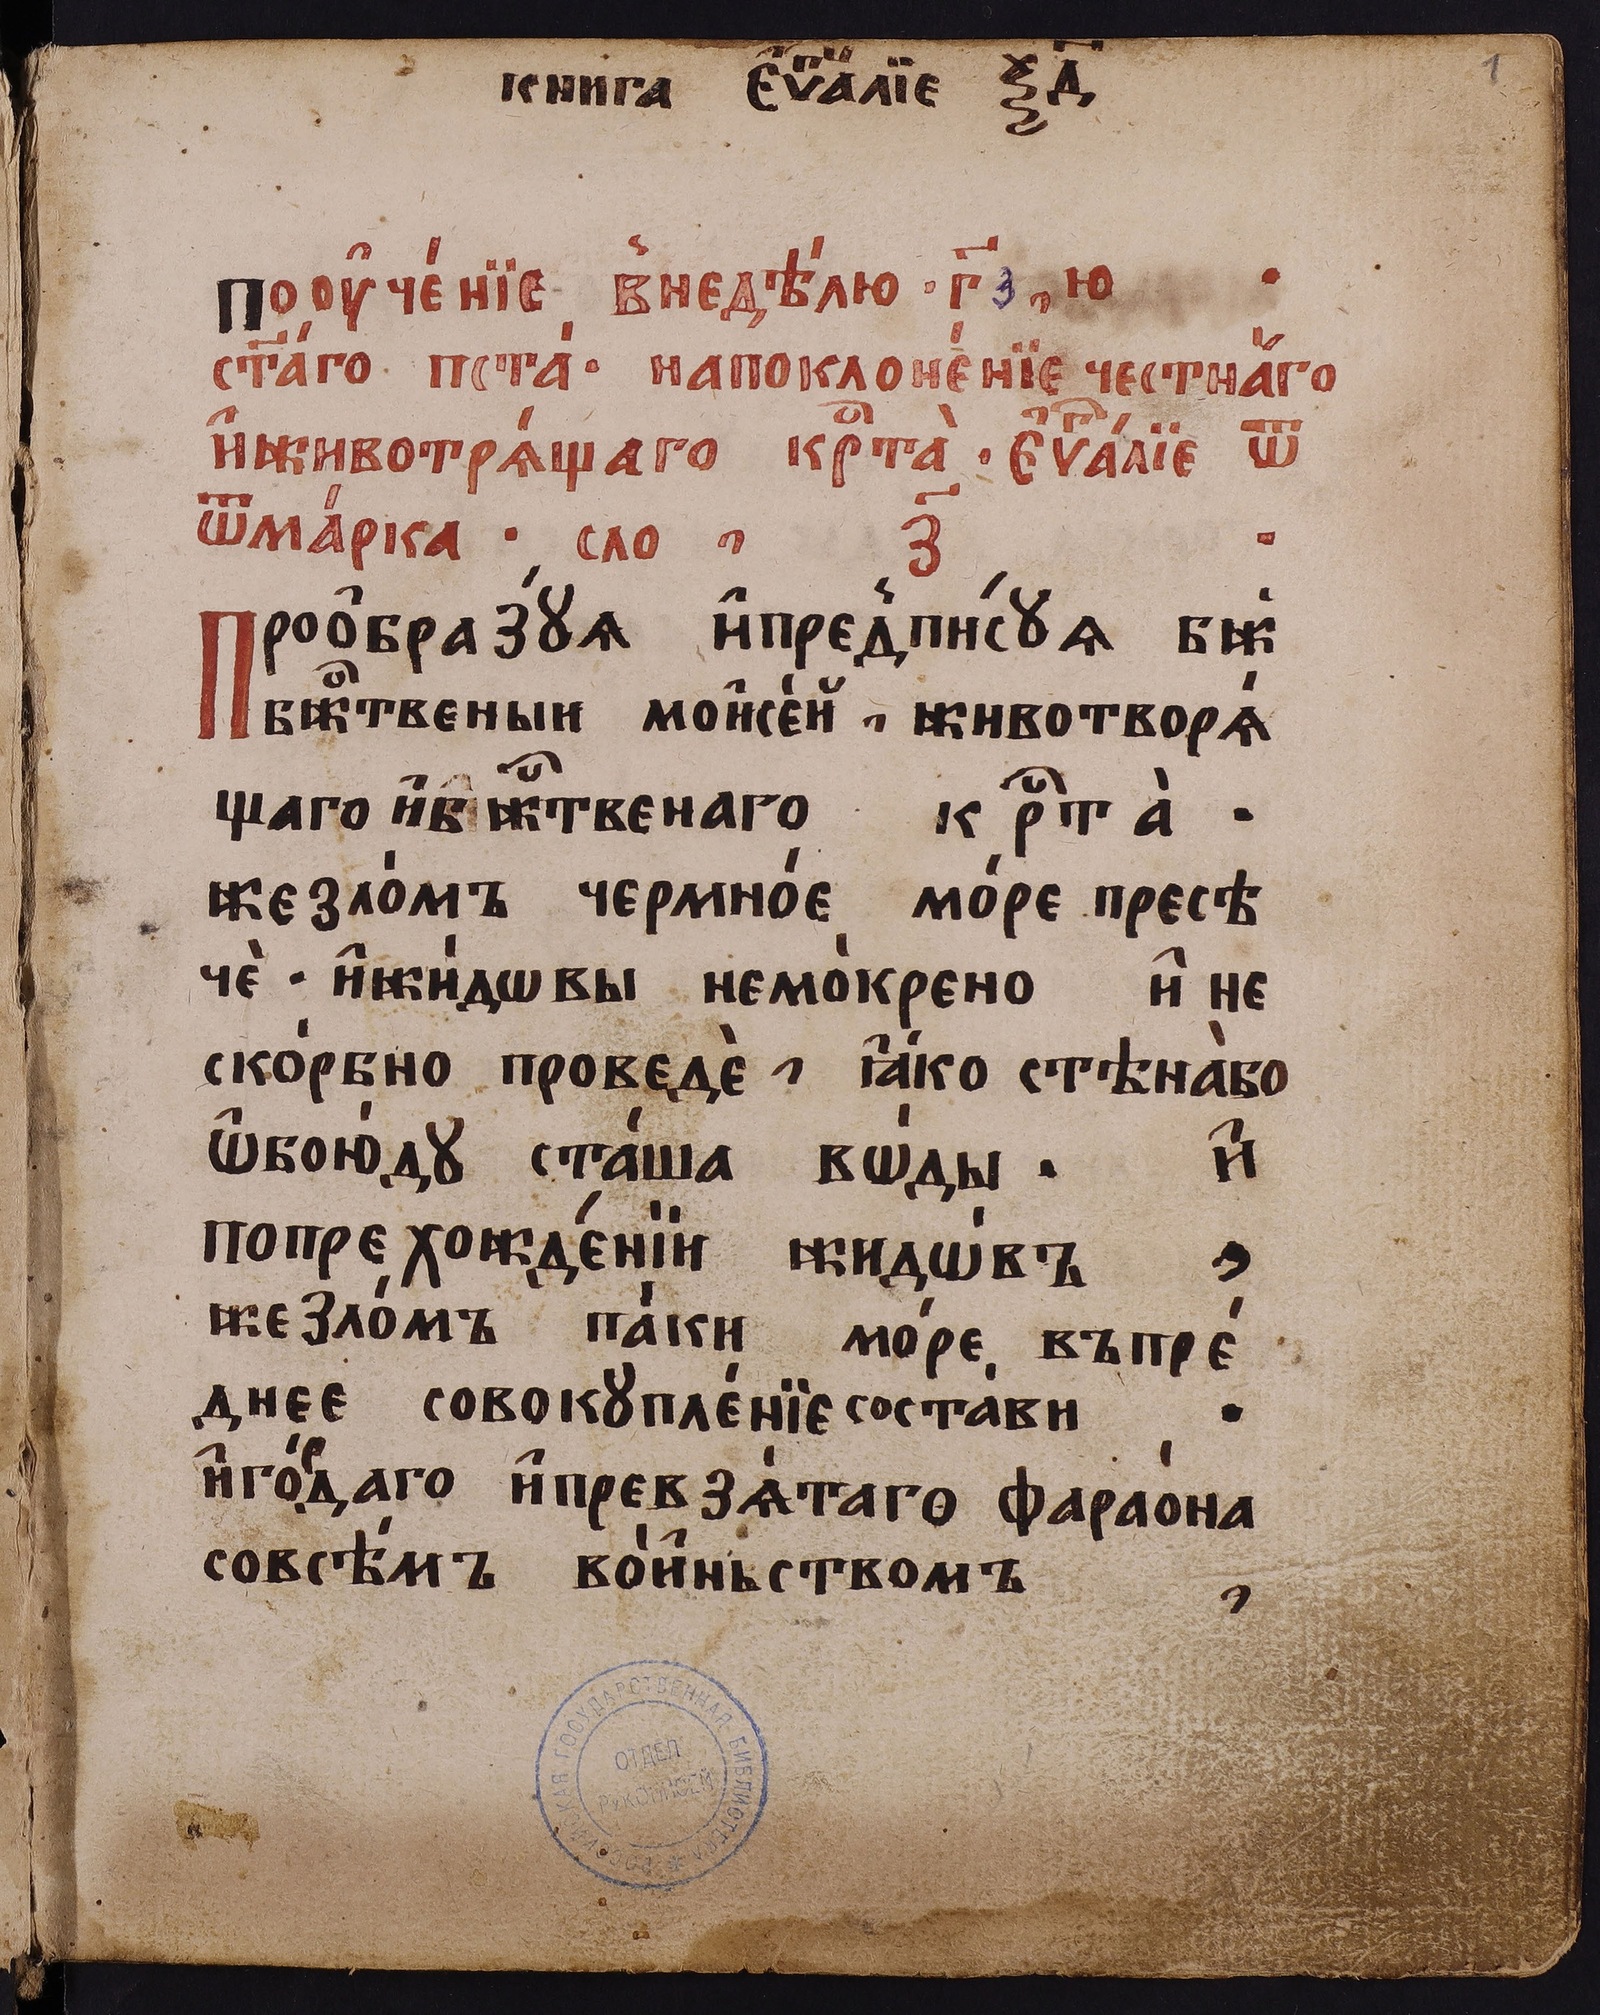 книга Єѵ҃аліе ѯ҃д
1
Пооуче́нїє внедѣ́лю · г҃з , ю ·
ст҃а́го пста̀ · напоклоне́нїе честна́го
и҆животрѧ́щаго крⷭ҇та̀ · Є҆ѵⷢ҇а́лїе ѿ
ѿма́рка · сло , з҃ ·
Проо҆бразꙋ́ѧ и҆предпи́сꙋѧ бж
бжⷭ҇твеныи мои҆се́й , животворѧ́
щаго и҆б жⷭ҇твенаго крⷭ҇та̀ ·
жезло́мъ чермно́е мо́ре пресѣ
чѐ · и҆жи́дѡвы немо́крено и҆ не
ско́рбно проведѐ , ꙗ҆́ко стѣна̀бо
ѡ҆бою́дꙋ ста́ша вѡ́ды · и҆
попрехожде́нїи жидѡ́въ ,
жезло́мъ па́ки мо́ре въпре́
днее совокꙋпле́нїе соста́ви ·
и҆го́рдаго и҆превзѧ́таго фарао́на
совсѣ́мъ во́и҆ньством​ъ ,
РОССИЙСКАЯ ГОСУДАРСТВЕННАЯ БИБЛИОТЕКА
ОТДЕЛ
РУКОПИСЕЙ